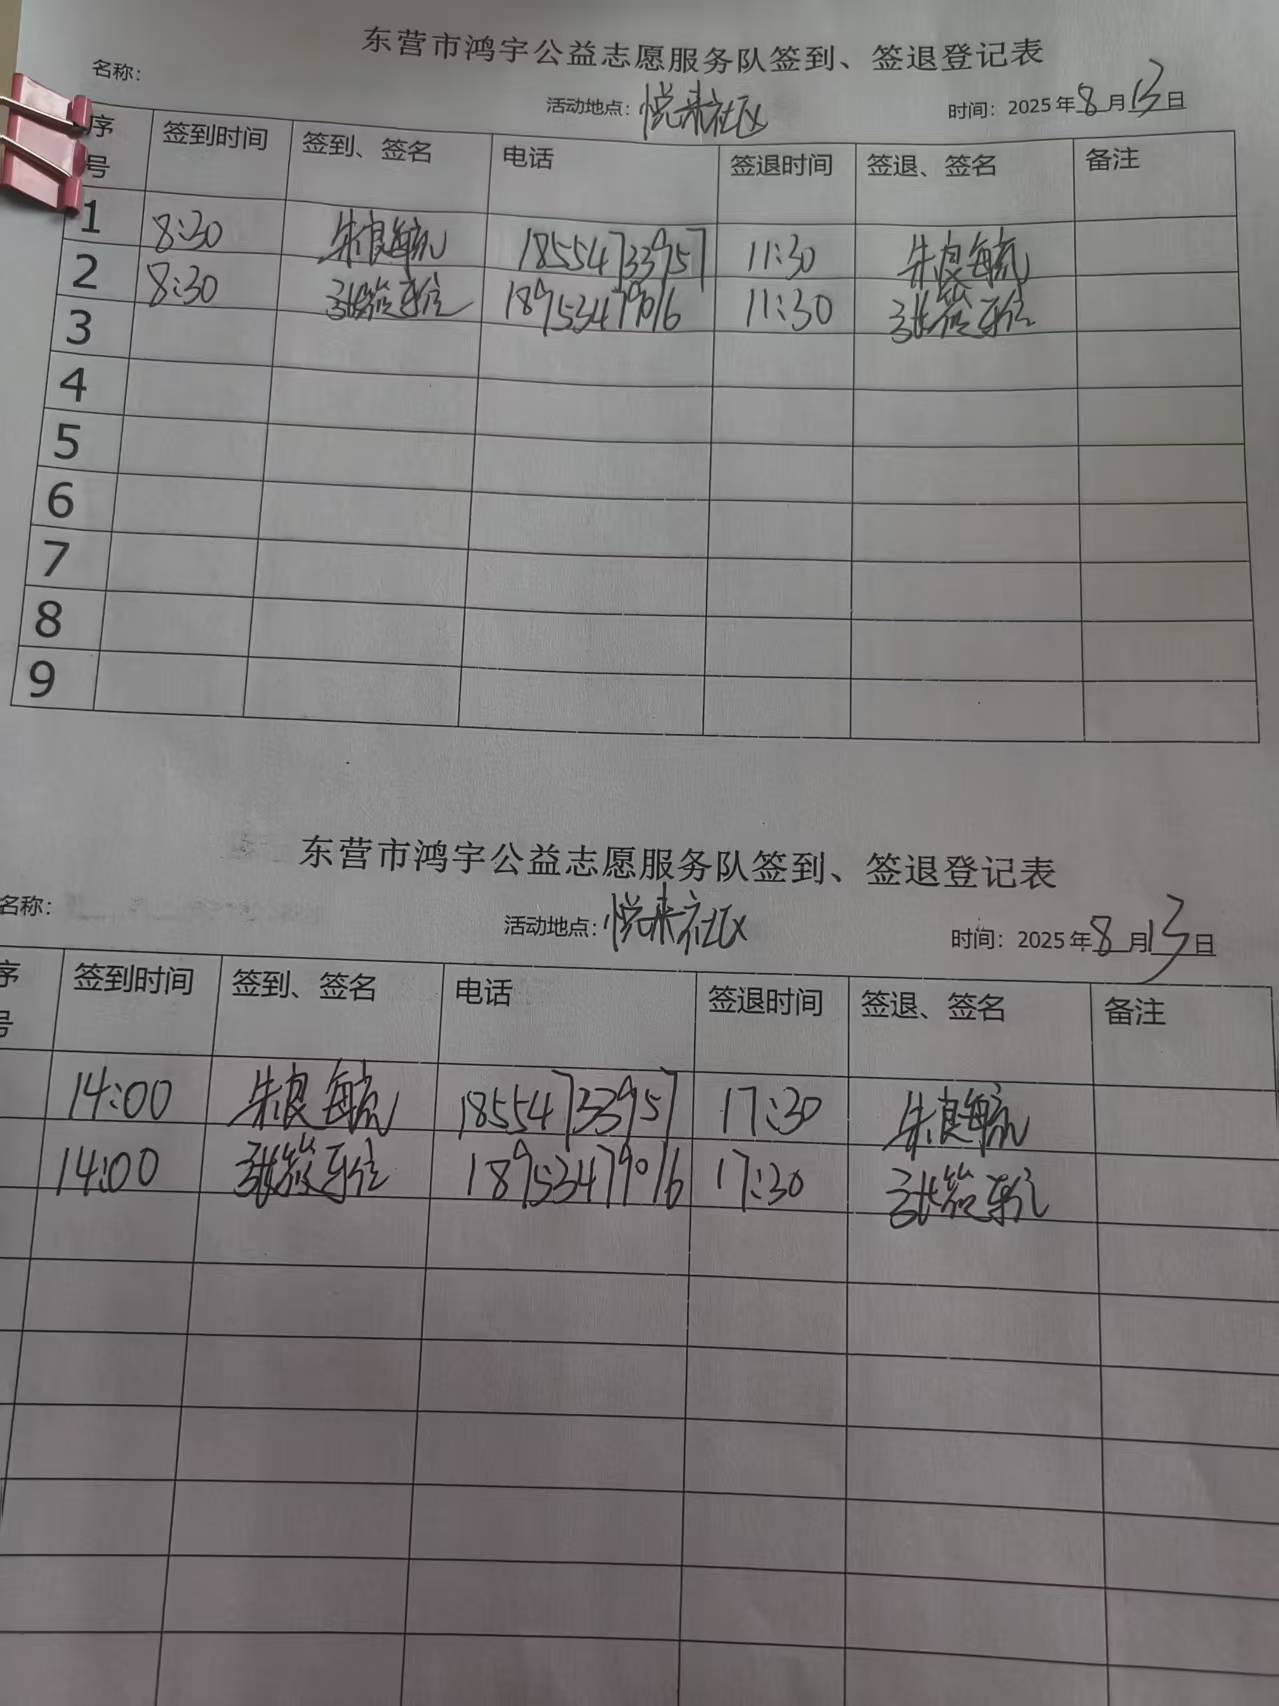 东营市鸿宇公益志愿服务队签到、签退登记表
名称： 活动地点：悦来社区 时间：2025年8月13日
序号 签到时间 签到、签名 电话 签退时间 签退、签名 备注
1 8:30 朱良毓 18554733957 11:30 朱良毓
2 8:30 张筱 18953479016 11:30 张筱
3
4
5
6
7
8
9
东营市鸿宇公益志愿服务队签到、签退登记表
名称： 活动地点：悦来社区 时间：2025年8月13日
序号 签到时间 签到、签名 电话 签退时间 签退、签名 备注
14:00 朱良毓 18554733957 17:30 朱良毓
14:00 张筱 18953479016 17:30 张筱